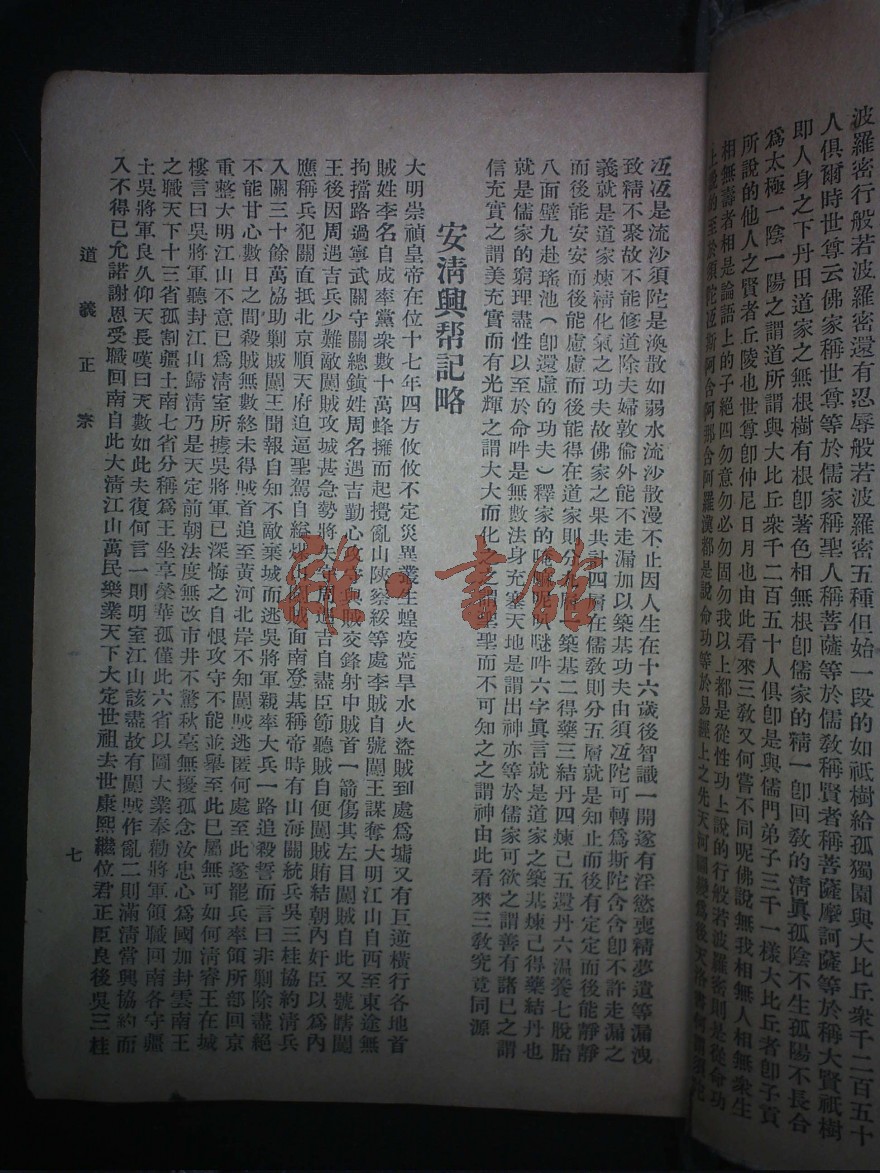 波羅密行般若波羅密還有忍辱般若波羅密五種但始一段的如祗樹給孤獨園與大比丘衆千二百五十
人俱爾時世尊云佛家稱世尊等於儒家稱聖人菩薩等於儒敎稱賢者稱菩薩摩訶薩等於稱大賢祗樹
即人身之下丹田道家之無根樹有根卽著色相無根卽儒家的精一卽回敎的淸眞孤陰不生孤陽不長合
爲太極一陰一陽之謂道所謂與大比丘衆千二百五十人俱卽是與儒門弟子三千一樣大比丘者卽子貢
所說的他人之賢者丘陵也世尊卽仲尼日月也由此看來三敎又何嘗不同呢佛說無我相無人相無衆生
相無壽者相是論語上的子絕四勿意勿必勿固勿我以上都是從性功上說的行般若波羅密則是從命功
上說的至於須陀冱斯阿含阿那含阿羅漢都是說命功等於易經上之先天河圖變爲後天洛書何謂須陀
冱冱是流沙須陀是渙散如弱水流沙散漫不止因人生在十六歲後智識一開遂有淫慾喪精夢遺等漏洩
致精不聚故不能修道除夫婦敦倫外能不走漏加以築基功夫由須冱陀可轉爲斯陀含含卽不許走漏之
義就是道家煉精化氣之功夫故佛家之果共計四層在儒敎則分五層就是知止而後有定定而後能靜靜
而後能安安而後能慮慮而後能得在道家則分九層一築基二得藥三結丹四煉己五還丹六溫養七脫胎
八面壁九赴瑤池（卽還虛的功夫）釋家的唵嘛呢叭㘕吽六字眞言就是道家之築基煉己得藥結丹也
就是儒家的窮理盡性以至於命吽是無數法身充塞天地是謂出神亦等於儒家可欲之謂善有諸已之謂
信充實之謂美充實而有光輝之謂大大而化之之謂聖聖而不可知之之謂神由此看來三敎究竟同源
安淸興帮記略
大明崇禎皇帝在位十七年四方攸攸不定災異叢生蝗疫荒旱水火盜賊到處爲墟又有巨逆橫行各地首
賊姓李名自成率黨衆數十萬蜂擁而起攪亂山陝察綏等處李賊自號闖王謀奪大明江山自西至東途無
拘擋路過寧武關守關總鎭姓周名遇吉勤心攻守與賊交鋒射中賊首一箭傷其左目闖賊自此又號瞎闖
王後因周遇吉兵少難敵闖賊攻城甚急勢將失守周遇吉自盡臣節聽賊自便闖賊賄結朝內奸臣以爲內
應稱兵犯關直抵北京順天府迫逼聖駕自縊煤山闖賊面南登基稱帝時有山海關統兵吳三桂協約淸兵
入關三十餘萬協助剿賊闖王聞報自知不敵棄城而逃吳將軍親率大兵一路追殺誓而言曰非剿除盡絕
不能甘心數日之間殺賊無數終未得賊首追至黃河北岸不知闖賊逃匿何處至此遂罷兵率領所部回京
重整大明江山不意已爲淸室所擄吳將軍已深悔之自恨攻守不能並舉至此已屬無可如何淸睿王在城
樓言曰吳將軍聽封江山歸淸乃是天定前朝法度無改市井不驚秋毫無擾孤念汝忠心爲國加封雲南王
之職天下十三省孤割疆土南七省分稱爲王坐享榮華孤僅此六省以圖大業奉勸將軍領職回南各守疆
土吳將軍良久仰天長嘆曰天數如此夫復何言一則明室江山該盡故有闖賊作亂二則滿淸當興協約而
入不得已允諾謝恩受職回南自此大淸江山萬民樂業天下大定世祖去世康熙繼位君正臣良後吳三桂
道義正宗
七
雅書館